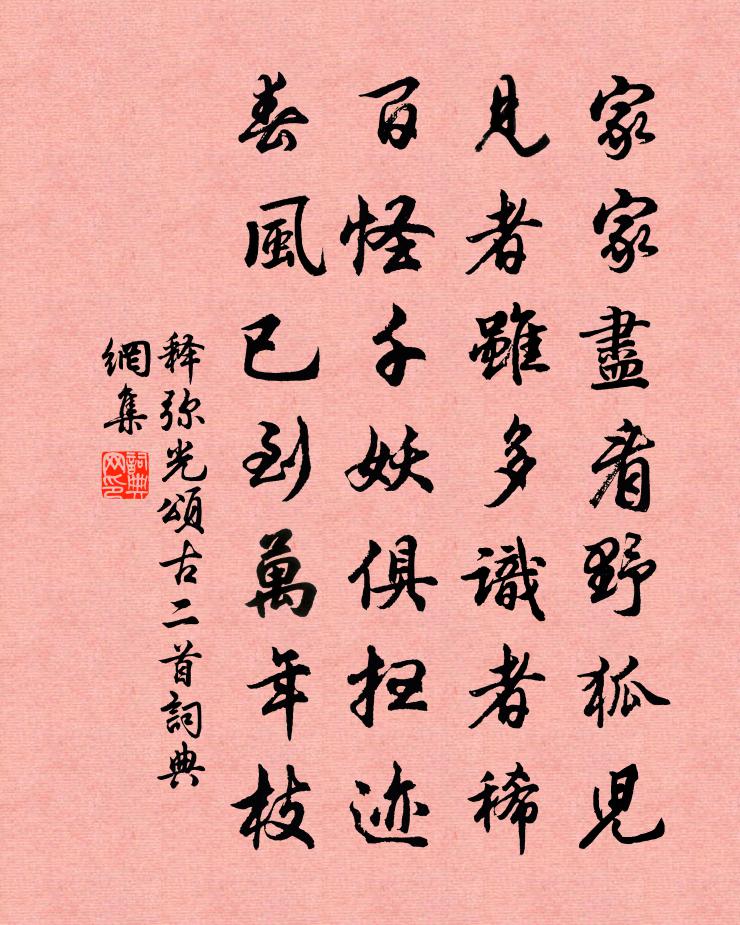 家家盡看野狐児
見者雖多識者稀
百怪千妖俱扫迹
春風已到萬年枝
释弥光頌古二首詞典
網集
詞典网印